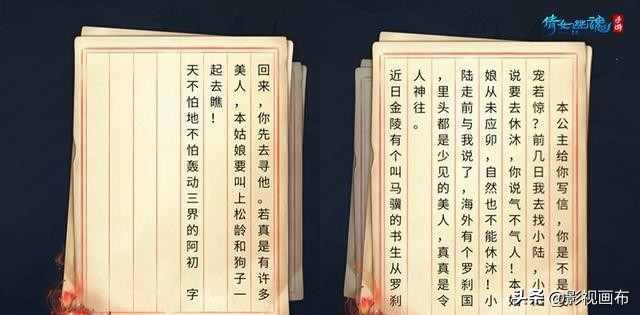 倩女幽魂
手游
本公主给你写信，你是不是
宠若惊？前几日我去找小陆，小
说要去休沐，你说气不气人！本姑
娘从未应卯，自然也不能休沐！小
陆走前与我说了，海外有个罗刹国
，里头都是少见的美人，真真是令
人神往。
近日金陵有个叫马骥的书生从罗刹
回来，你先去寻他。若真是有许多
美人，本姑娘要叫上松龄和狗子一
起去瞧！
天不怕地不怕轰动三界的阿初 字
头条 @影视画布